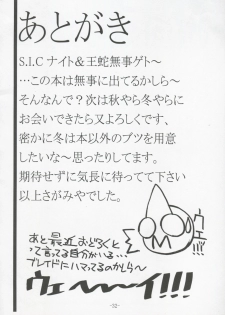 あとがき
S.I.C ナイト＆王蛇無事ゲト～
…この本は無事に出てるかしら～
そんなんで？次は秋やら冬やらに
お会いできたら又よろしくです、
密かに冬は本以外のブツを用意
したいな～思ったりしてます。
期待せずに気長に待ってて下さい
以上さがみやでした。
ウェ
あと最近おどろくと
って言ってる自分がいる…
ブレイドにハマってるのかしら～
ウェ～～イ!!!
-32-